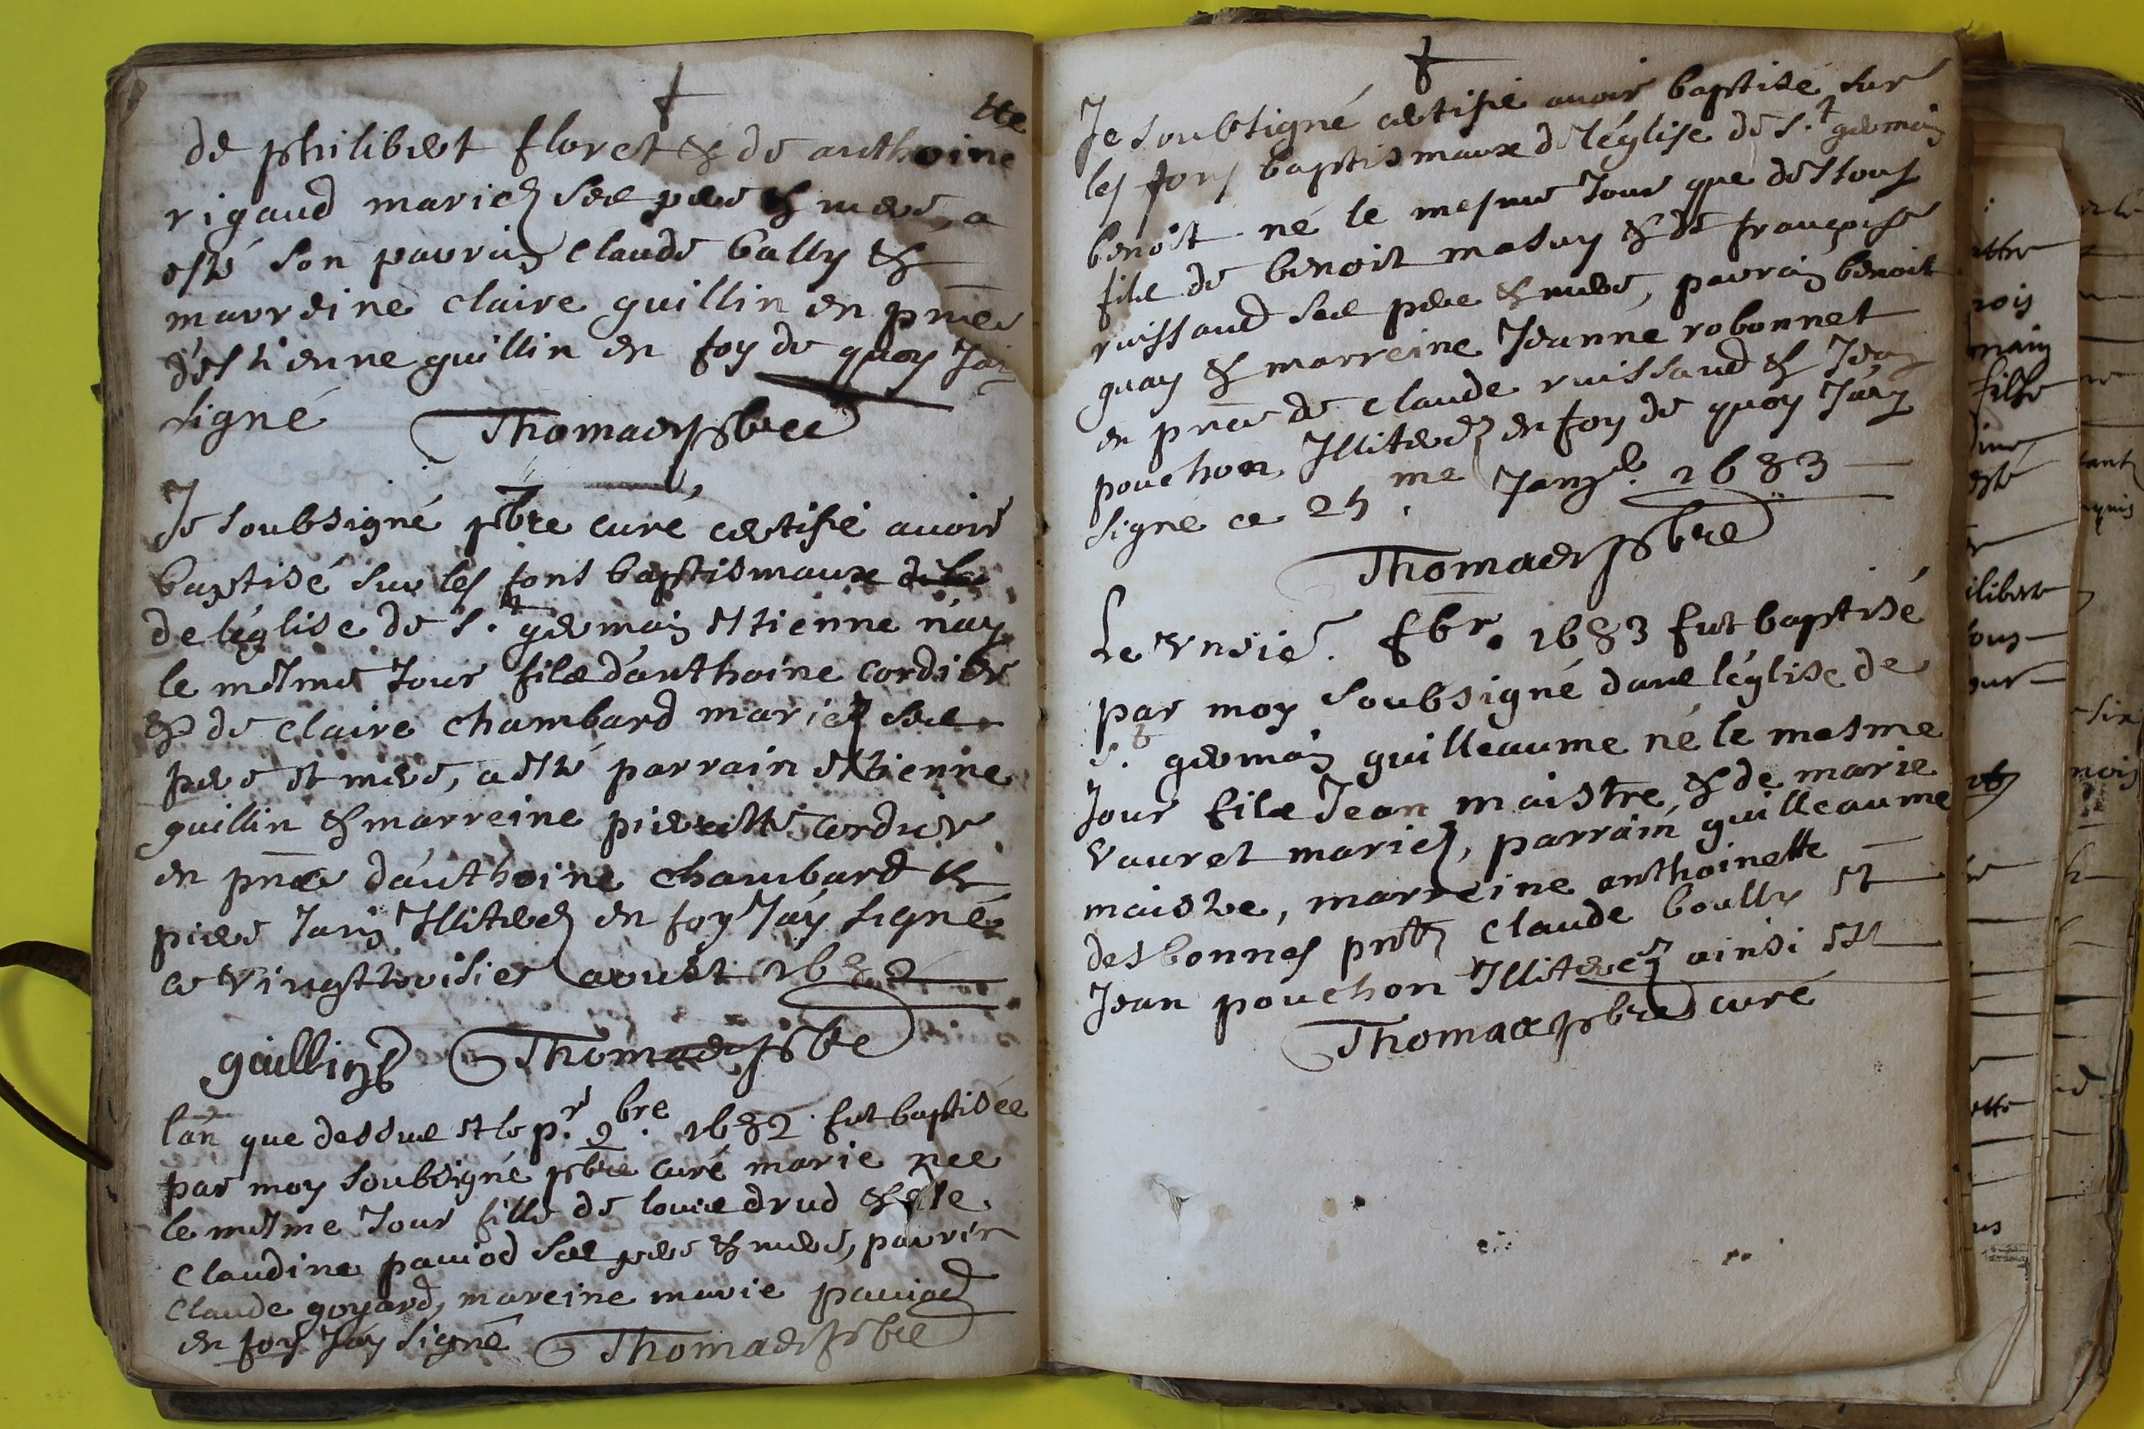 de philibert floret & de anthoinette
rigaud mariez ses pere & mere, a
esté son parrain claude bally &
marreine claire guillin en pnce
d'estienne guillin en foy de quoy Jay
signé
Thomas pbre
Je soubsigné pbre curé certifie avoir
baptisé sur les fons baptismaux
de léglise de s.t germain estienne nay
le mesme Jour fils d'anthoine cordier
& de claire chambard mariez ses
pere et mere, a esté parrain estienne
guillin & marreine pierrette cordier
en pnce d'anthoine chambard &
piere Illiterez en foy Jay signé
ce vingt troisier aoust 1682
guillin Thomas pbre
lan que dessus et le p.r 9.bre 1682 fut baptisée
par moy soubsigné pbre curé marie nee
le mesme Jour fille de louis drud & de
claudine paviod ses pere & mere, parrin
claude goyard, mareine marie paviod
en foy Jay signé Thomas pbre
Je soubsigné certifie avoir baptisé sur
les fons baptismaux de léglise de s.t germain
benoist né le mesme Jour que dessous
fils de benoit masuy & de françoise
ruissaud ses pere & mere, parrain benoit
guay & marreine Jeanne robonnet
en pnce de claude ruissaud & Jean
pouchon Illiterez en foy de quoy Jay
signé ce 25.me Janv. 1683
Thomas pbre
Le unsie. fbr. 1683 fut baptisé
par moy soubsigné dans léglise de
s.t germain guilleaume né le mesme
Jour fils Jean maistre & de marie
vauret mariez, parrain guilleaume
maistre, marreine anthoinette
desbonnes pntz claude boully et
Jean pouchon Illiterez ainsi est
Thomas pbre curé